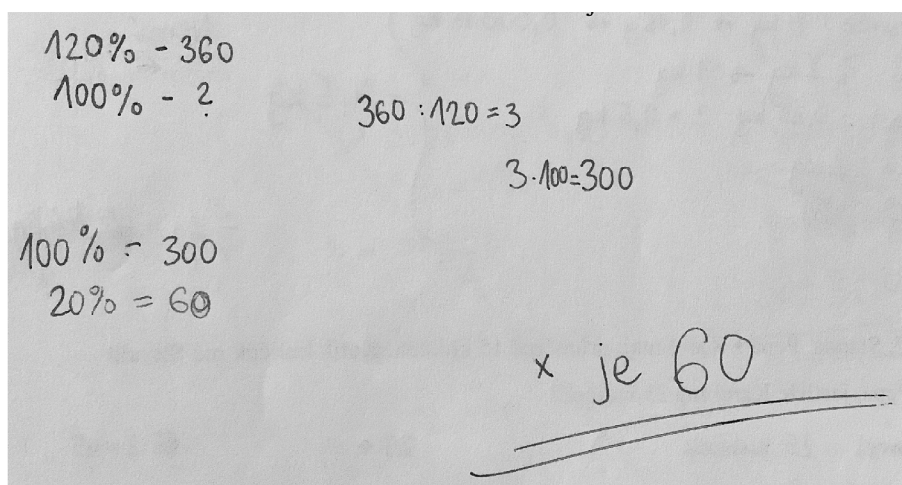 120% - 360
100% - ?
360 : 120 = 3
3 · 100 = 300
100% - 300
20% = 60
x je 60